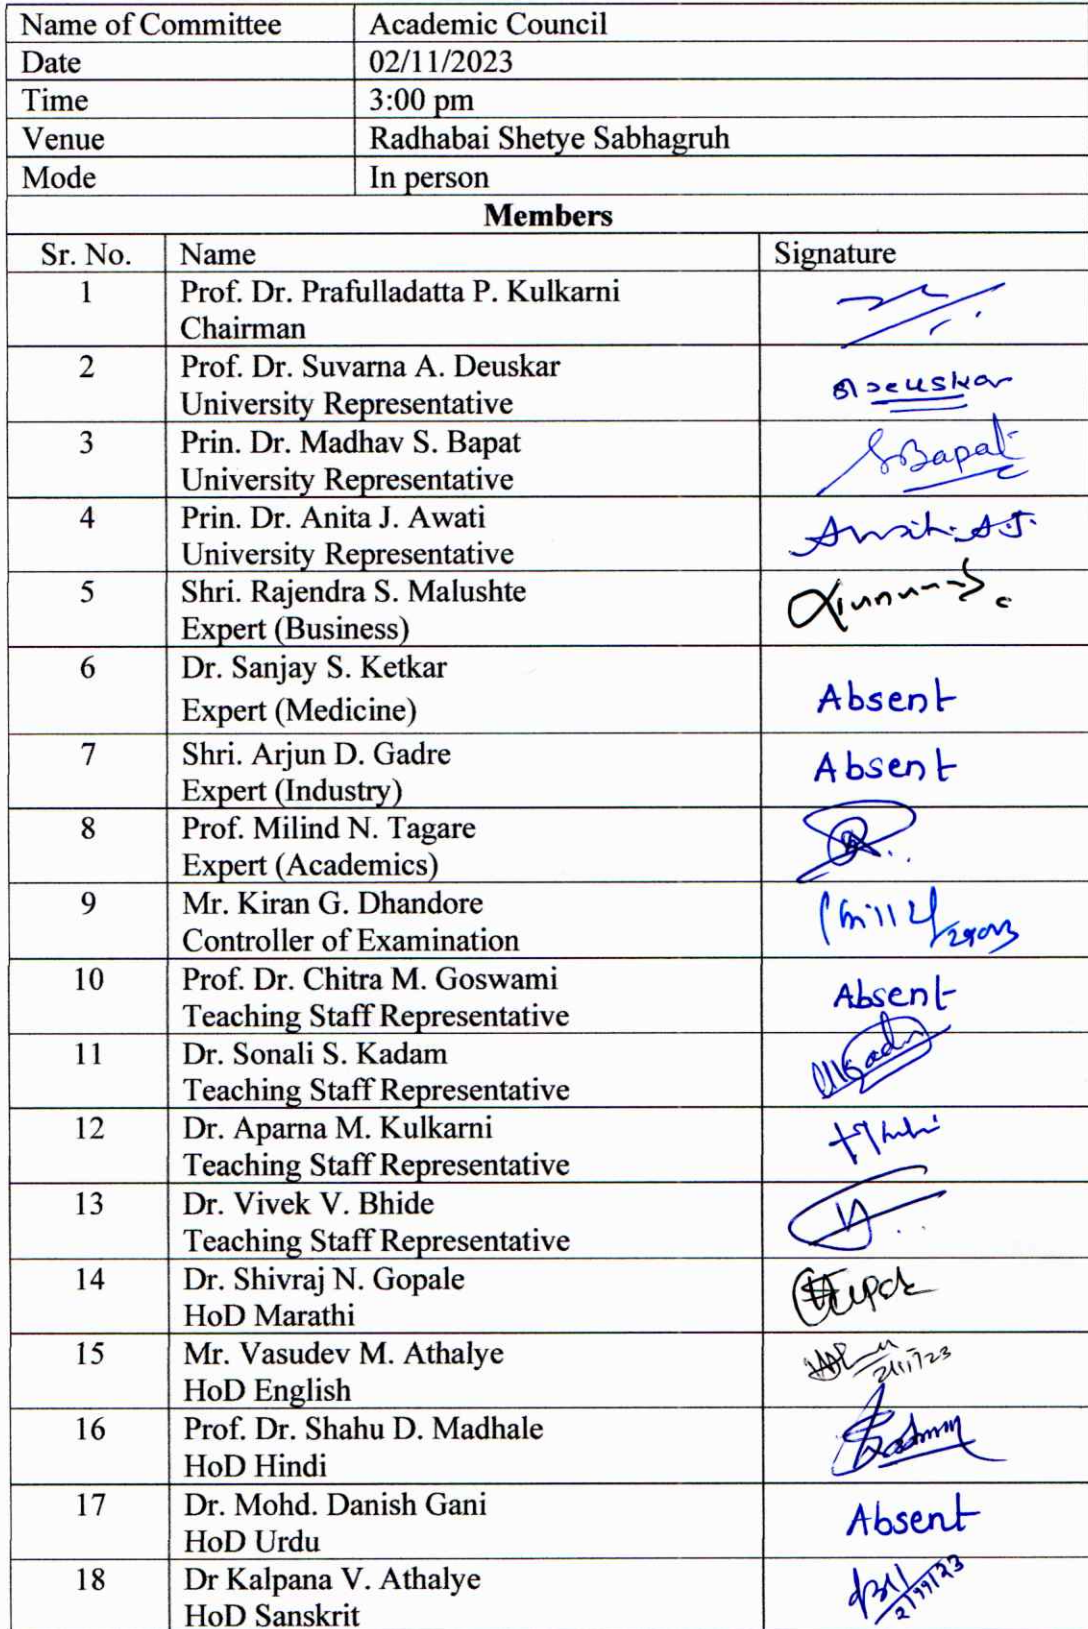 Name of Committee Academic Council
Date 02/11/2023
Time 3:00 pm
Venue Radhabai Shetye Sabhagruh
Mode In person
Members
Sr. No. Name Signature
1 Prof. Dr. Prafulladatta P. Kulkarni
Chairman
2 Prof. Dr. Suvarna A. Deuskar
University Representative Deuskar
3 Prin. Dr. Madhav S. Bapat
University Representative Bapat
4 Prin. Dr. Anita J. Awati
University Representative
5 Shri. Rajendra S. Malushte
Expert (Business)
6 Dr. Sanjay S. Ketkar
Expert (Medicine) Absent
7 Shri. Arjun D. Gadre
Expert (Industry) Absent
8 Prof. Milind N. Tagare
Expert (Academics)
9 Mr. Kiran G. Dhandore
Controller of Examination
10 Prof. Dr. Chitra M. Goswami
Teaching Staff Representative Absent
11 Dr. Sonali S. Kadam
Teaching Staff Representative
12 Dr. Aparna M. Kulkarni
Teaching Staff Representative
13 Dr. Vivek V. Bhide
Teaching Staff Representative
14 Dr. Shivraj N. Gopale
HoD Marathi
15 Mr. Vasudev M. Athalye
HoD English 2/11/23
16 Prof. Dr. Shahu D. Madhale
HoD Hindi
17 Dr. Mohd. Danish Gani
HoD Urdu Absent
18 Dr Kalpana V. Athalye
HoD Sanskrit